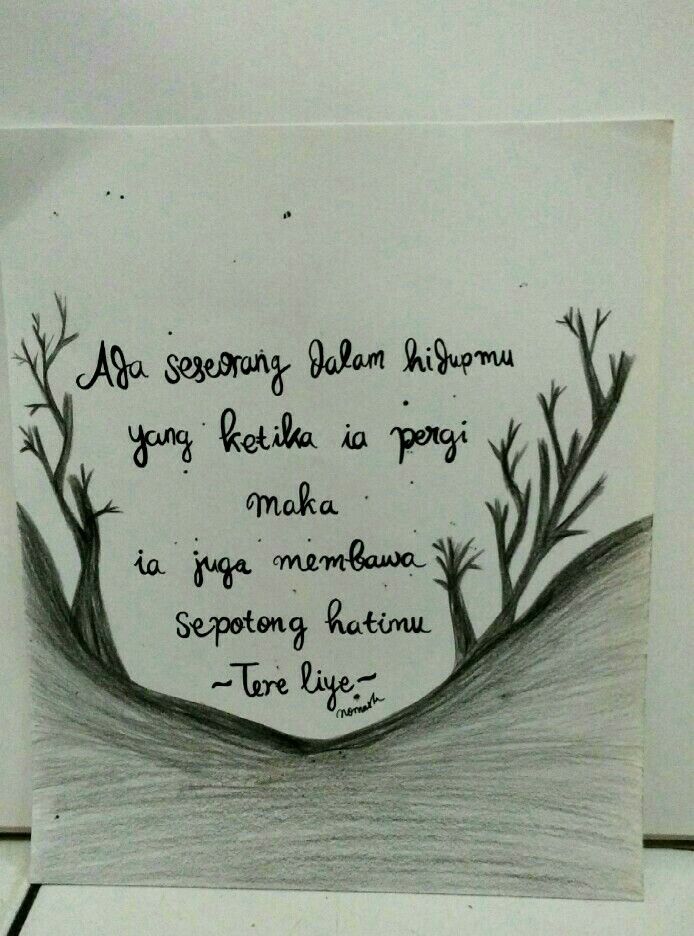 Ada seseorang dalam hidupmu
yang ketika ia pergi
maka
ia juga membawa
sepotong hatimu
~Tere liye~